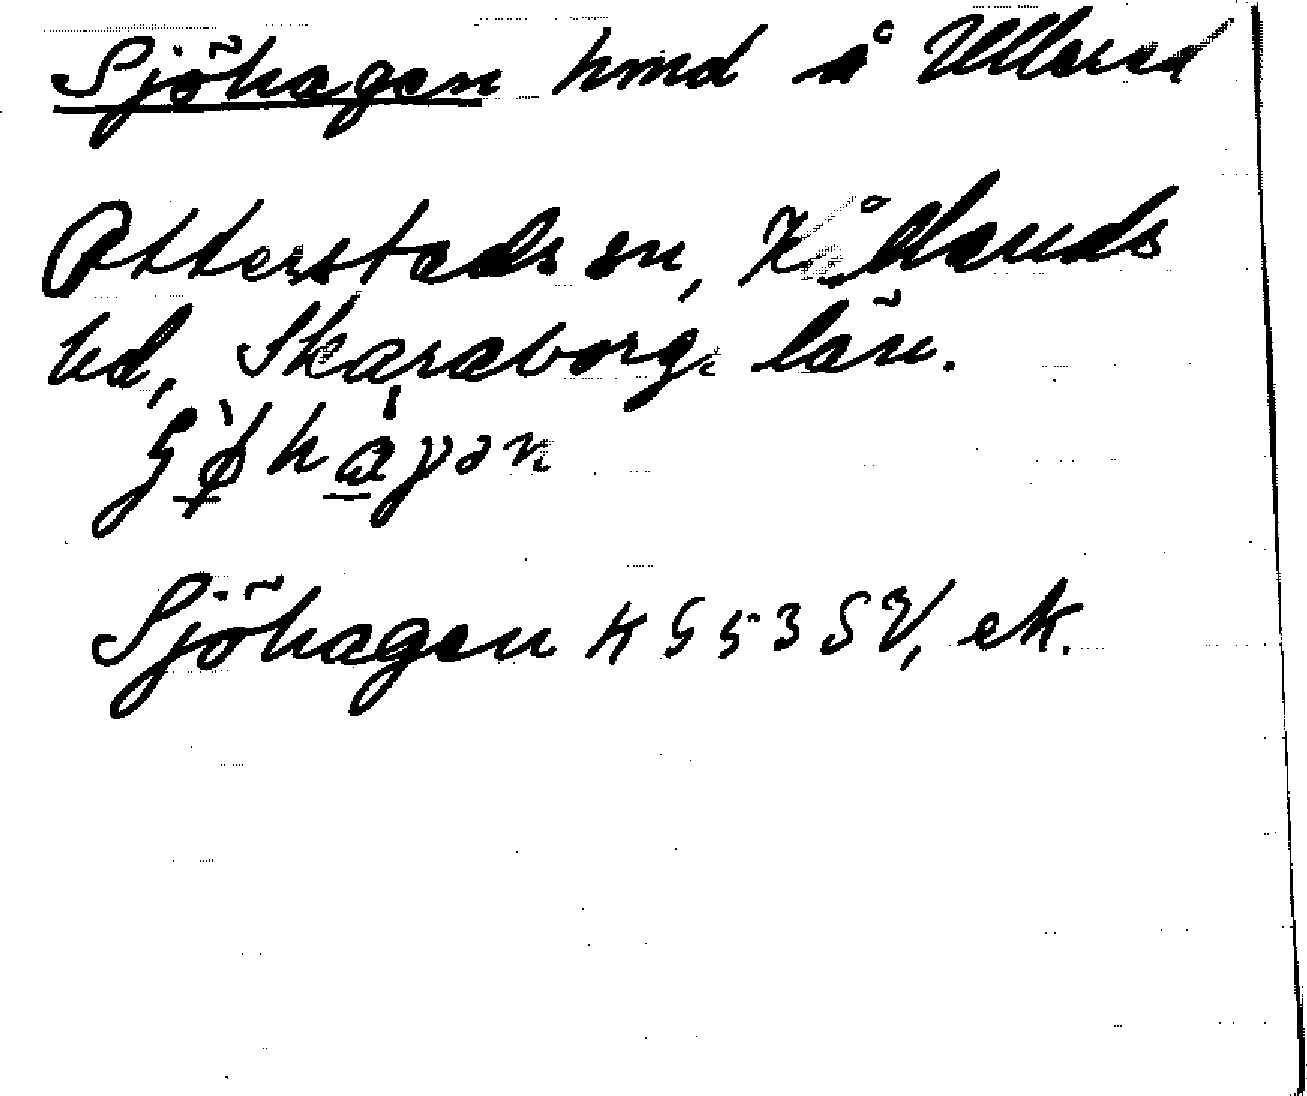 Sjöhagen hmd å Ullered
Otterstads sn, Kållands
hd, Skaraborgs län.
Sjöhagen K G 53 SV, ek.